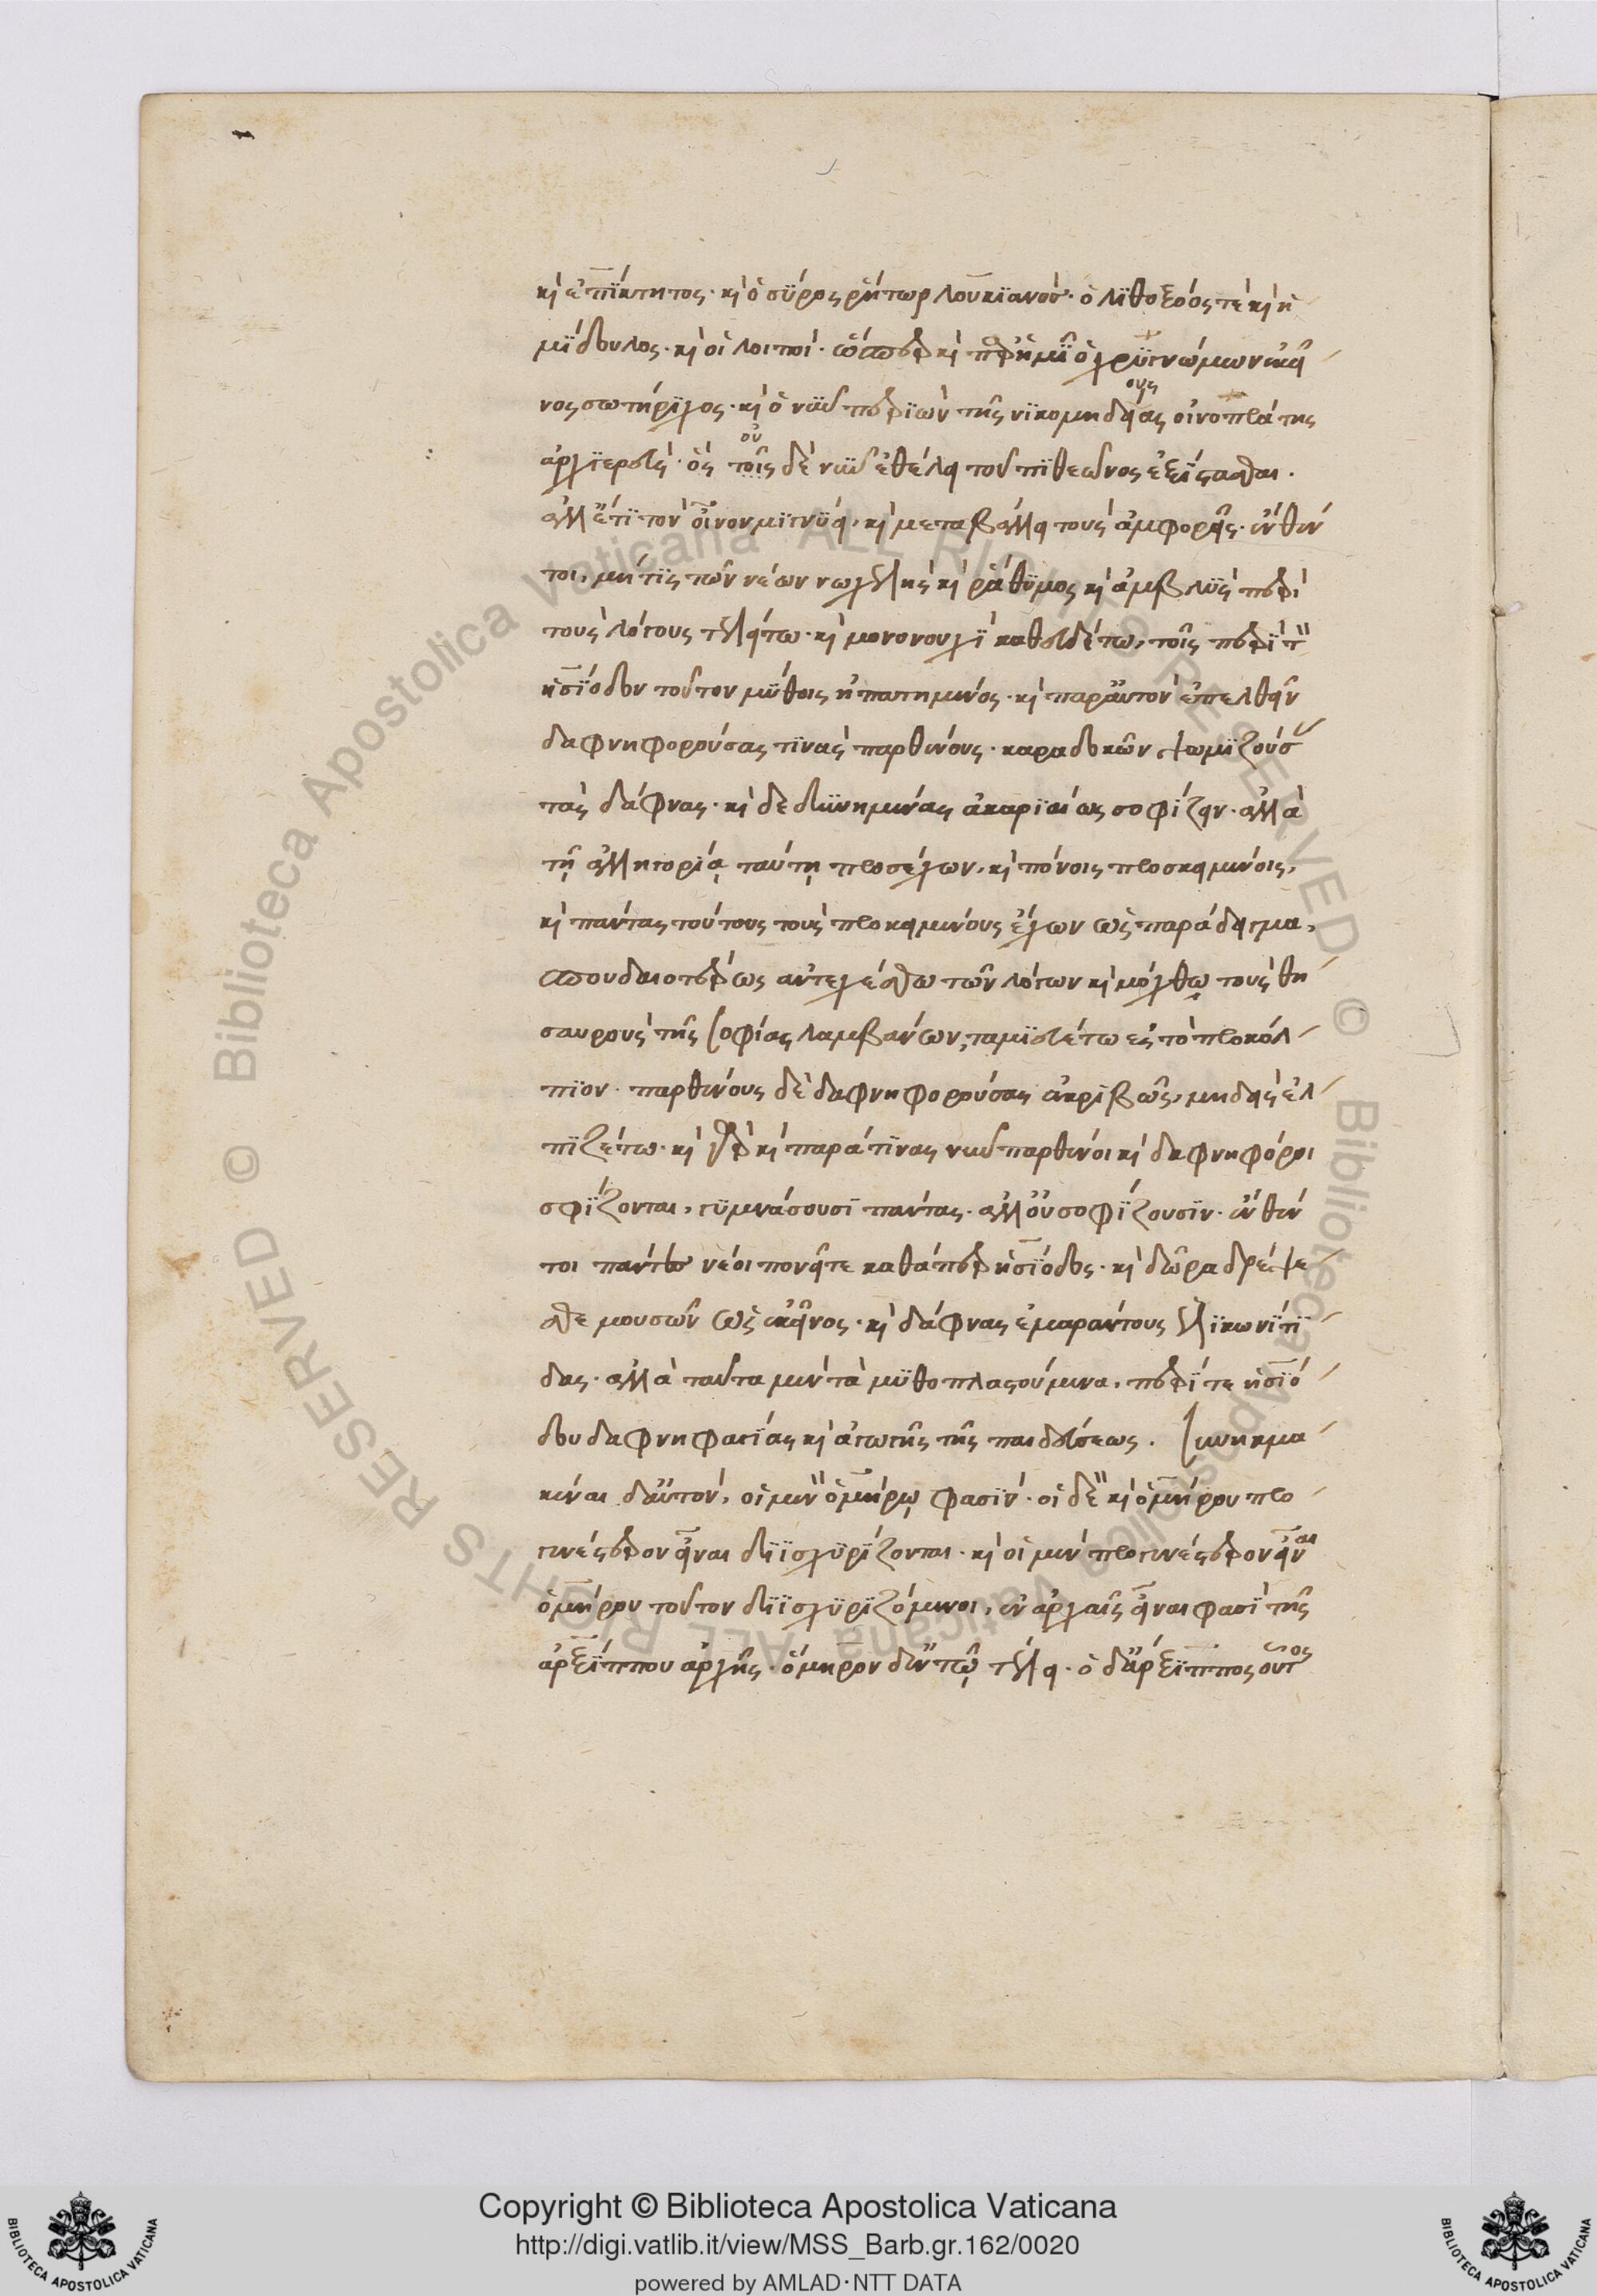 κὶ ἐπίκτητος· κὶ ὁ σύρος ῥήτωρ λουκιανός· ὁ λιθοξόος τὲ κὶ ἡ
μίδουλος· κὶ οἱ λοιποί· ὥσπερ κὶ ἡμῖν ὁ χρυγνώμων ἐκεῖ
νος σωτήριχος· κὶ ὁ νῦν περιὼν τῆς νικομηδείας οἰνοπράτης
ἀρχιερεύς· ὃς τοῖς δὲ νῦν ἐθέλει τοῦ πιθεῶνος ἐξίστασθαι.
ἀλλ' ἔτι τὸν οἶνον μιγνύει, κὶ μεταβάλλει τοὺς ἀμφορεῖς· ἐνθέν
τοι, μήτις τῶν νέων νωχελὴς κὶ ῥάθυμος κὶ ἀμβλὺς περὶ
τοὺς λόγους τελείτω· κὶ μονονουχὶ καθευδέτω, τοῖς περὶ τ
ἡσίοδον τοῦτον μύθοις ἠπατημένος· κὶ παρ' αὐτὸν ἐπελθεῖν
δαφνηφορούσας τινὰς παρθένους· καραδοκῶν ψωμιζούσ
τὰς δάφνας· κὶ δεδιϋνημένας ἀκαριαίως σοφίζειν· ἀλλὰ
τῇ ἀλληγορίᾳ ταύτῃ προσέχων, κὶ πόνοις προσκειμένοις,
κὶ πάντας τούτους τοὺς προκειμένους ἔχων ὡς παράδειγμα,
σπουδαιοτέρως ἀντεχέσθω τῶν λόγων κὶ μόχθῳ τοὺς θη
σαυροὺς τῆς σοφίας λαμβάνων, ταμιευέτω ες τὸ προκόλ
πιον· παρθένους δὲ δαφνηφορούσας ἀκριβῶς, μηδεὶς ἐλ
πιζέτω· κὶ κὶ παρά τινας νῦν παρθένοι κὶ δαφνηφόροι
σφίζονται, γυμνάσουσι πάντας· ἀλλ' οὐ σοφίζουσιν· ἐνθέν
τοι πάντες νέοι πονεῖτε καθάπερ ἡσίοδος· κὶ δῶρα δρέψε
σθε μουσῶν ὡς ἐκεῖνος· κὶ δάφνας ἐμαράντους ἑλικωνίτι
δας· ἀλλὰ ταῦτα μὲν τὰ μυθοπλαστούμενα, περί τε ἡσιό
δου δαφνηφαγίας κὶ ἀγωγῆς τῆς παιδεύσεως. συνηκμα
κέναι δ' αὐτόν, οἱ μὲν ὁμήρῳ φασίν· οἱ δὲ κὶ ὁμήρου προ
γενέστερον εἶναι διϊσχυρίζονται· κὶ οἱ μὲν προγενέστερον εἶναι
ὁμήρου τοῦτον διϊσχυριζόμενοι, ἐν ἀρχαῖς εἶναι φασὶ τῆς
ἀρξίππου ἀρχῆς· ὅμηρον δ' ἐν τῷ τέλει· ὁ δ' ἄρξιππος οὗτος
Copyright © Biblioteca Apostolica Vaticana
http://digi.vatlib.it/view/MSS_Barb.gr.162/0020
powered by AMLAD·NTT DATA